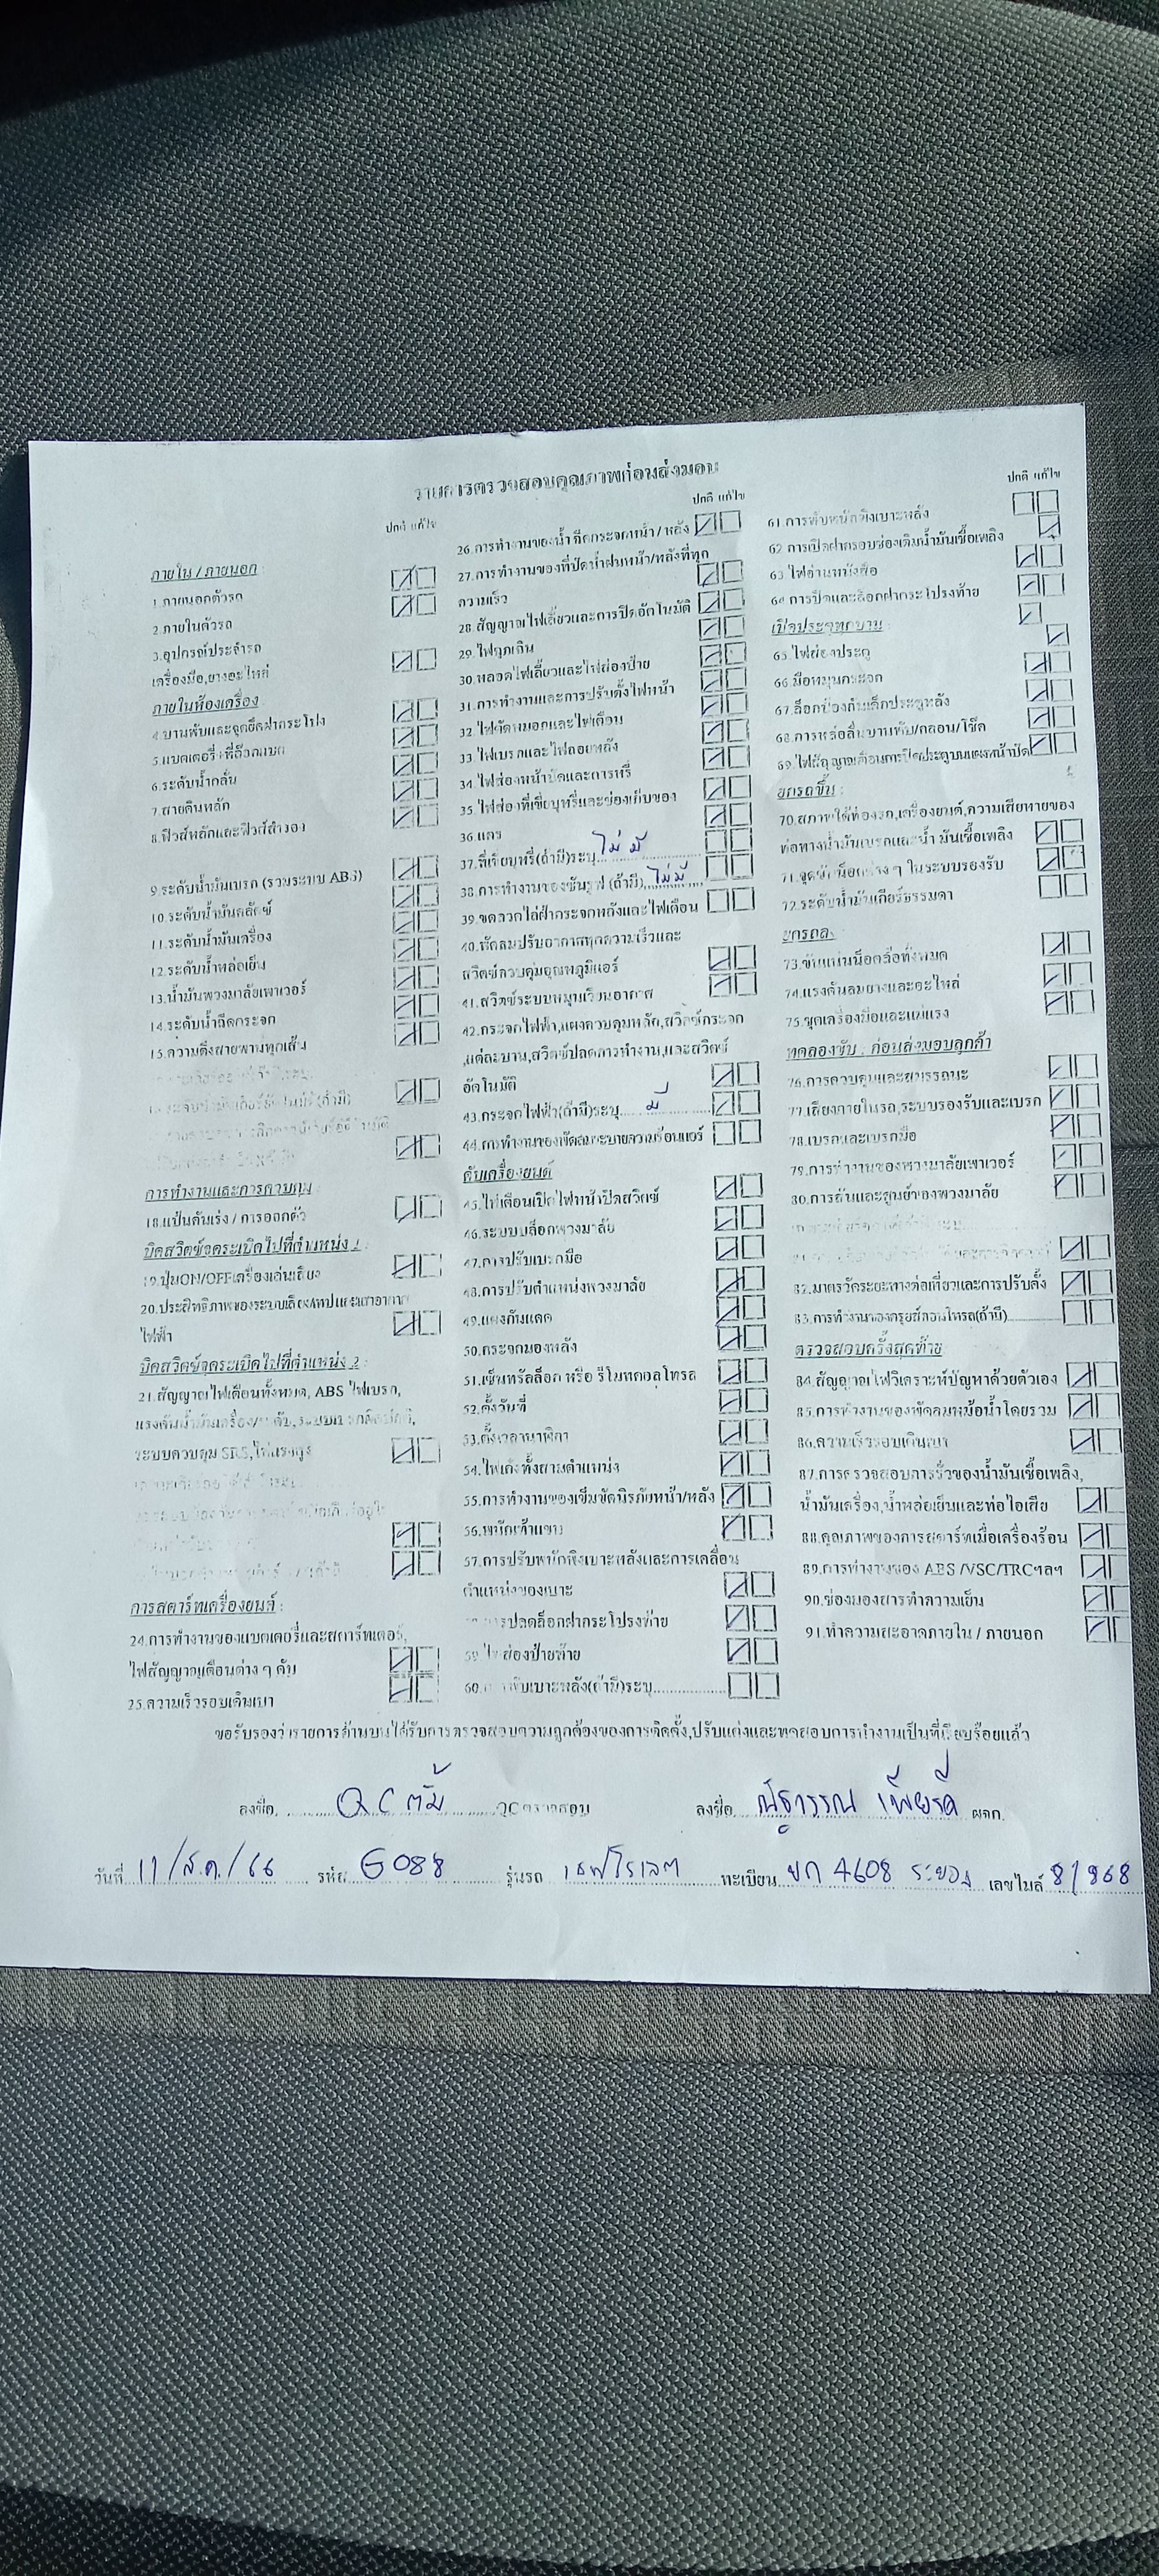 รายการตรวจสอบคุณภาพก่อนส่งมอบ
ปกติ แก้ไข
ภายใน / ภายนอก
1.ภายนอกตัวรถ
2.ภายในตัวรถ
3.อุปกรณ์ประจำรถ
เครื่องมือ,ยางอะไหล่
ภายในห้องเครื่อง
4.บานพับและจุดยึดฝากระโปรง
5.แบตเตอรี่
6.ระดับน้ำกลั่น
7.สายดินหลัก
8.ฟิวส์หลักและฟิวส์สำรอง
9.ระดับน้ำมันเบรก (รวมระบบ ABS)
10.ระดับน้ำมันคลัตช์
11.ระดับน้ำมันเครื่อง
12.ระดับน้ำหล่อเย็น
13.น้ำมันพวงมาลัยเพาเวอร์
14.ระดับน้ำฉีดกระจก
15.ความตึงสายพานทุกเส้น
การทำงานและการควบคุม
18.แป้นคันเร่ง / การออกตัว
บิดสวิตซ์จุดระเบิดไปที่ตำแหน่ง 1 :
19.ปุ่มON/OFFเครื่องเล่นเสียง
20.ประสิทธิภาพของระบบเสียง/เทปและเสาอากาศ
ไฟฟ้า
บิดสวิตซ์จุดระเบิดไปที่ตำแหน่ง 2 :
21.สัญญาณไฟเตือนทั้งหมด, ABS ไฟเบรก,
ระบบควบคุม SRS,
การสตาร์ทเครื่องยนต์ :
24.การทำงานของแบตเตอรี่และสตาร์ทเตอร์,
ไฟสัญญาณเตือนต่าง ๆ ดับ
25.ความเร็วรอบเดินเบา
ปกติ แก้ไข
26.การทำงานของน้ำฉีดกระจกหน้า / หลัง
27.การทำงานของที่ปัดน้ำฝนหน้า/หลังที่ทุก
ความเร็ว
28.สัญญาณไฟเลี้ยวและการปิดอัตโนมัติ
29.ไฟฉุกเฉิน
30.หลอดไฟเลี้ยวและไฟส่องป้าย
31.การทำงานและการปรับตั้งไฟหน้า
32.ไฟตัดหมอกและไฟเตือน
33.ไฟเบรกและไฟถอยหลัง
34.ไฟส่องหน้าปัดและการหรี่
35.ไฟส่องที่เขี่ยบุหรี่และช่องเก็บของ
36.แตร
37.ที่เขี่ยบุหรี่(ถ้ามี)ระบุ ไม่มี
38.การทำงานของซันรูฟ (ถ้ามี) ไม่มี
39.ขดลวดไล่ฝ้ากระจกหลังและไฟเตือน
40.พัดลมปรับอากาศทุกความเร็วและ
สวิตซ์ควบคุมอุณหภูมิแอร์
41.สวิตซ์ระบบหมุนเวียนอากาศ
42.กระจกไฟฟ้า,แผงควบคุมหลัก,สวิตซ์กระจก
,แต่ละบาน,สวิตซ์ปลดการทำงาน,และสวิตซ์
อัตโนมัติ
43.กระจกไฟฟ้า(ถ้ามี)ระบุ มี
44.การทำงานของพัดลมระบายความร้อนแอร์
ดับเครื่องยนต์
45.ไฟเตือนเปิดไฟหน้าเปิดสวิตซ์
46.ระบบบล็อกพวงมาลัย
47.การปรับเบรกมือ
48.การปรับตำแหน่งพวงมาลัย
49.แผงกันแดด
50.กระจกมองหลัง
51.เซ็นทรัลล็อก หรือ รีโมทคอลโทรล
52.ตั้งวันที่
53.ตั้งเวลานาฬิกา
54.ไฟเก๋งทั้งสามตำแหน่ง
55.การทำงานของเข็มขัดนิรภัยหน้า/หลัง
56.พนักเท้าแขน
57.การปรับพนักพิงเบาะหลังและการเคลื่อน
ตำแหน่งของเบาะ
การปลดล็อกฝากระโปรงท้าย
59.ไฟส่องป้ายท้าย
60. พับเบาะหลัง(ถ้ามี)ระบุ
ปกติ แก้ไข
61.การพับพนักพิงเบาะหลัง
62.การเปิดฝาครอบช่องเติมน้ำมันเชื้อเพลิง
63.ไฟอ่านหนังสือ
64.การปิดและล็อกฝากระโปรงท้าย
เปิดประตูทุกบาน :
65.ไฟส่องประตู
66.มือหมุนกระจก
67.ล็อกป้องกันเด็กประตูหลัง
68.การหล่อลื่นบานพับ/กลอน/โช๊ค
69.ไฟสัญญาณเตือนการปิดประตูบนแผงหน้าปัด
ยกรถขึ้น :
70.สภาพใต้ท้องรถ,เครื่องยนต์,ความเสียหายของ
ท่อทางน้ำมันเบรกและน้ำมันเชื้อเพลิง
71.จุดขันน็อตต่าง ๆ ในระบบรองรับ
72.ระดับน้ำมันเกียร์ธรรมดา
ยกรถลง
73.ขันแน่นน็อตล้อทั้งหมด
74.แรงดันลมยางและอะไหล่
75.ชุดเครื่องมือและแม่แรง
ทดลองขับ : ก่อนส่งมอบลูกค้า
76.การควบคุมและสมรรถนะ
77.เสียงภายในรถ,ระบบรองรับและเบรก
78.เบรกและเบรกมือ
79.การทำงานของพวงมาลัยเพาเวอร์
80.การสั่นและศูนย์ของพวงมาลัย
82.มาตรวัดระยะทางต่อเที่ยวและการปรับตั้ง
83.การทำงานของครุยส์คอนโทรล(ถ้ามี)
ตรวจสอบครั้งสุดท้าย
84.สัญญาณไฟวิเคราะห์ปัญหาด้วยตัวเอง
85.การทำงานของพัดลมหม้อน้ำโดยรวม
86.ความเร็วรอบเดินเบา
87.การตรวจสอบการรั่วของน้ำมันเชื้อเพลิง,
น้ำมันเครื่อง,น้ำหล่อเย็นและท่อไอเสีย
88.คุณภาพของการสตาร์ทเมื่อเครื่องร้อน
89.การทำงานของ ABS /VSC/TRCฯลฯ
90.ช่องมองสารทำความเย็น
91.ทำความสะอาดภายใน / ภายนอก
ขอรับรองว่ารายการด้านบนได้รับการตรวจสอบความถูกต้องของการติดตั้ง,ปรับแต่งและทดสอบการทำงานเป็นที่เรียบร้อยแล้ว
ลงชื่อ QC ตั้ม QC ตรวจสอบ ลงชื่อ ผจก.
วันที่ 11/ส.ค./66 รหัส G088 รุ่นรถ เชฟโรเลต ทะเบียน ยก 4608 ระยอง เลขไมล์ 81868